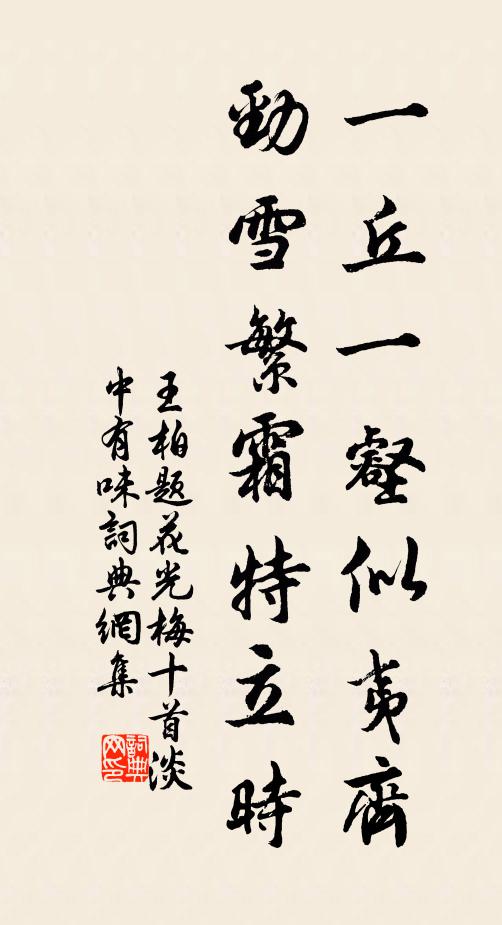 一丘一壑似夷齊
勁雪繁霜特立時
王柏題花光梅十首淡
中有味詞典網集
詞典網印